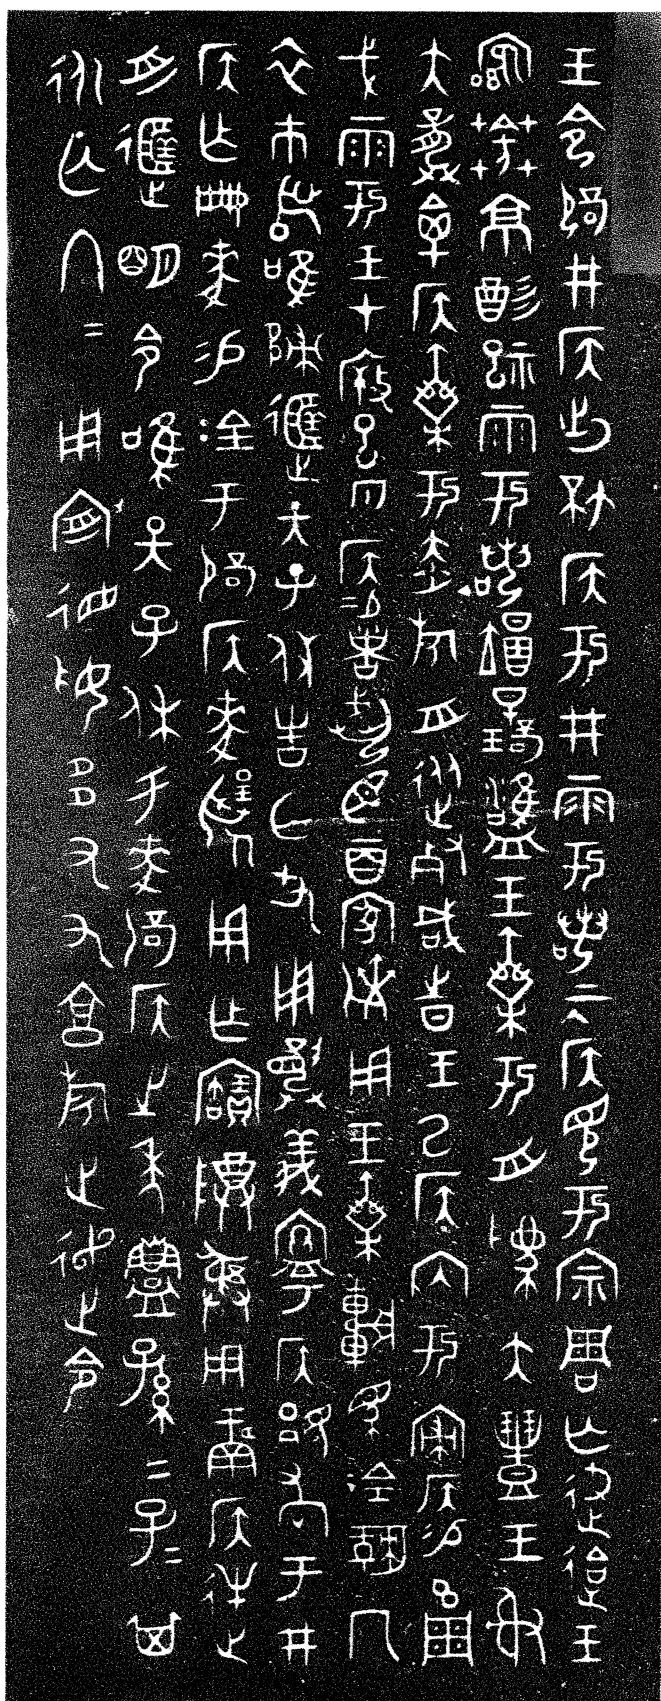 王令辟井侯出坯侯于井雩若二月侯見于宗周亡尤會王
𩛥京酻祀雩若翌日在璧雝王乘于舟為大豐王射
大龏禽侯乘于赤旂舟從死咸之日王以侯内于寢侯易玄周
戈雩王在㡴巳夕侯易者䂂臣二百家劑用王乘車馬金勒冂
衣巿舄唯歸𢓊天子休告亡尤用龏義寧侯顯考于井
侯乍冊麥易金于辟侯麥揚用乍寶尊彝用𠭯侯逆𨒫
𢓊明令唯天子休于麥辟侯之年鑄孫孫子子其
永亡冬冬用𨒫德妥多友享旋走令